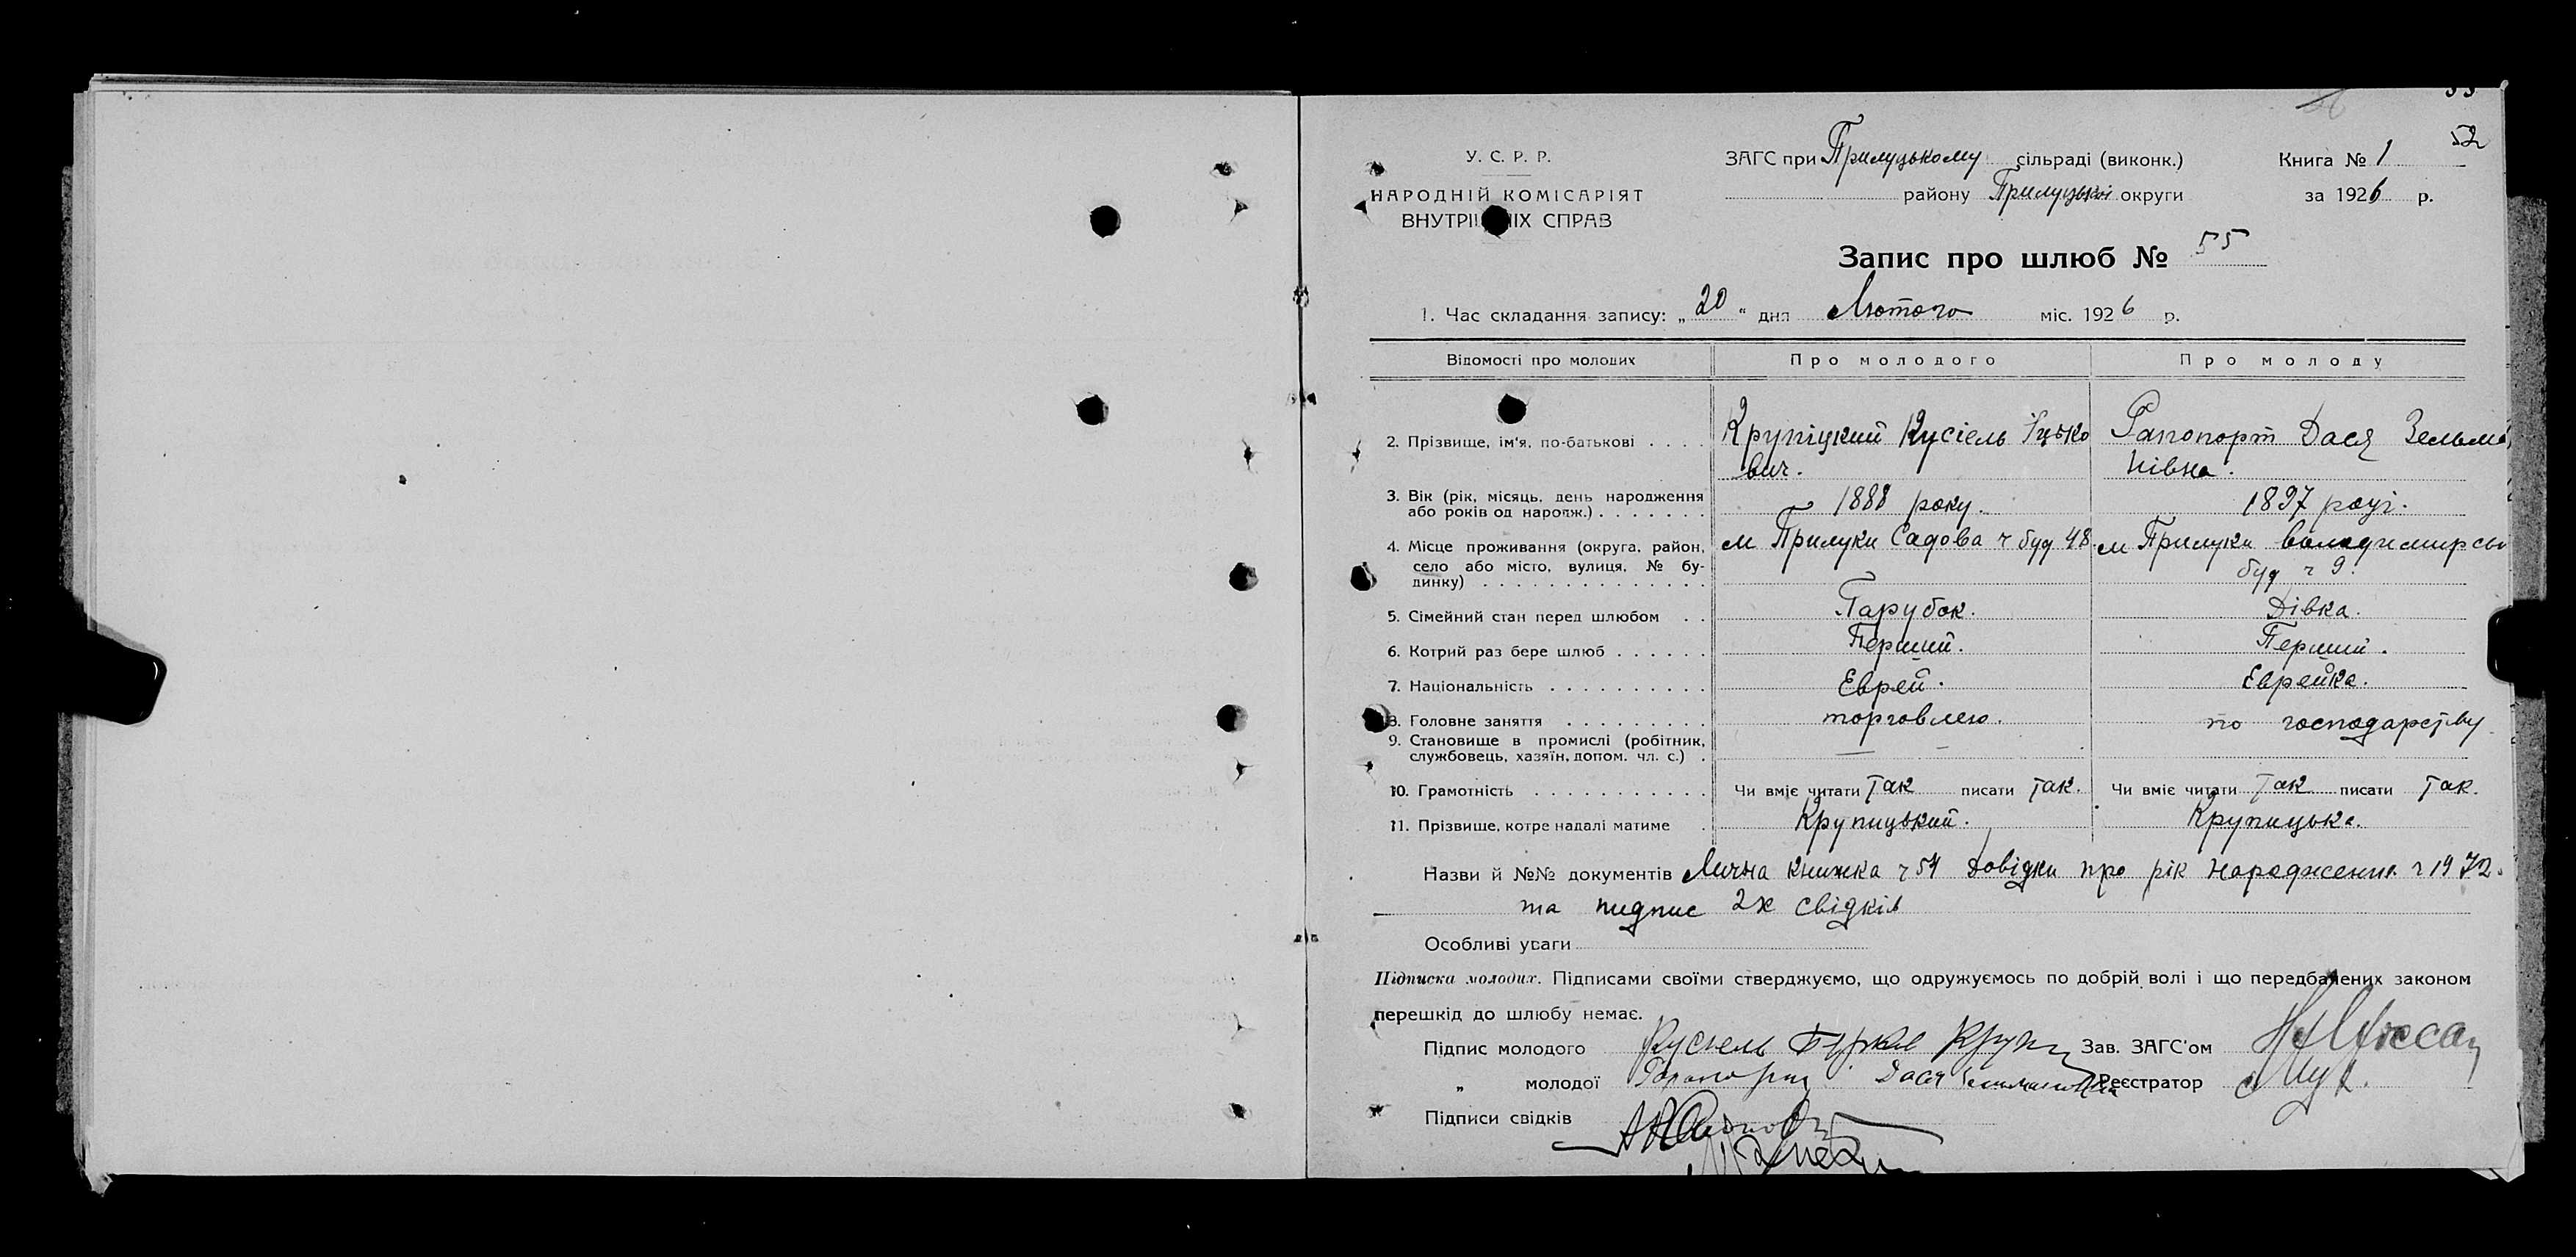 52
У. С. Р. Р.
НАРОДНІЙ КОМІСАРІЯТ
ВНУТРІШНІХ СПРАВ
ЗАГС при Прилуцькому сільраді (виконк.)
району Прилуцької округи
Книга № 1
за 1926 р.
Запис про шлюб № 55
1. Час складання запису: „20“ дня Лютого міс. 1926 р.
Відомості про молодих Про молодого Про молоду
2. Прізвище, ім'я, по-батькові . . . . Крупіцкий Кусіель Іцько Рапопорт Дася Зельма
вич. нівна.
3. Вік (рік, місяць, день народження
або років од нарож.) . . . . . . . 1888 року. 1897 році.
4. Місце проживання (округа, район, м Прилуки Садова ч буд 48. м Прилуки Володимирсь
село або місто, вулиця, № бу- буд ч 9.
динку) . . . . . . . . . . . . . .
5. Сімейний стан перед шлюбом . . Парубок. Дівка.
6. Котрий раз бере шлюб . . . . . . Перший. Перший.
7. Національність . . . . . . . . . . Еврей. Еврейка.
8. Головне заняття . . . . . . . . . торговлею. по господарству
9. Становище в промислі (робітник, — —
службовець, хазяїн, допом. чл. с.) .
10. Грамотність . . . . . . . . . . . Чи вміє читати так писати так. Чи вміє читати так писати так.
11. Прізвище, котре надалі матиме . Крупицький. Крупицька.
Назви й №№ документів Лична книжка ч 54 Довідки про рік народження ч 1972.
та пидпис 2х свідків
Особливі уваги
Підписка молодих. Підписами своїми стверджуємо, що одружуємось по добрій волі і що передбачених законом
перешкід до шлюбу немає.
Підпис молодого Кусиель Зав. ЗАГС'ом
„ молодої Рапопорт Дася Реєстратор
Підписи свідків